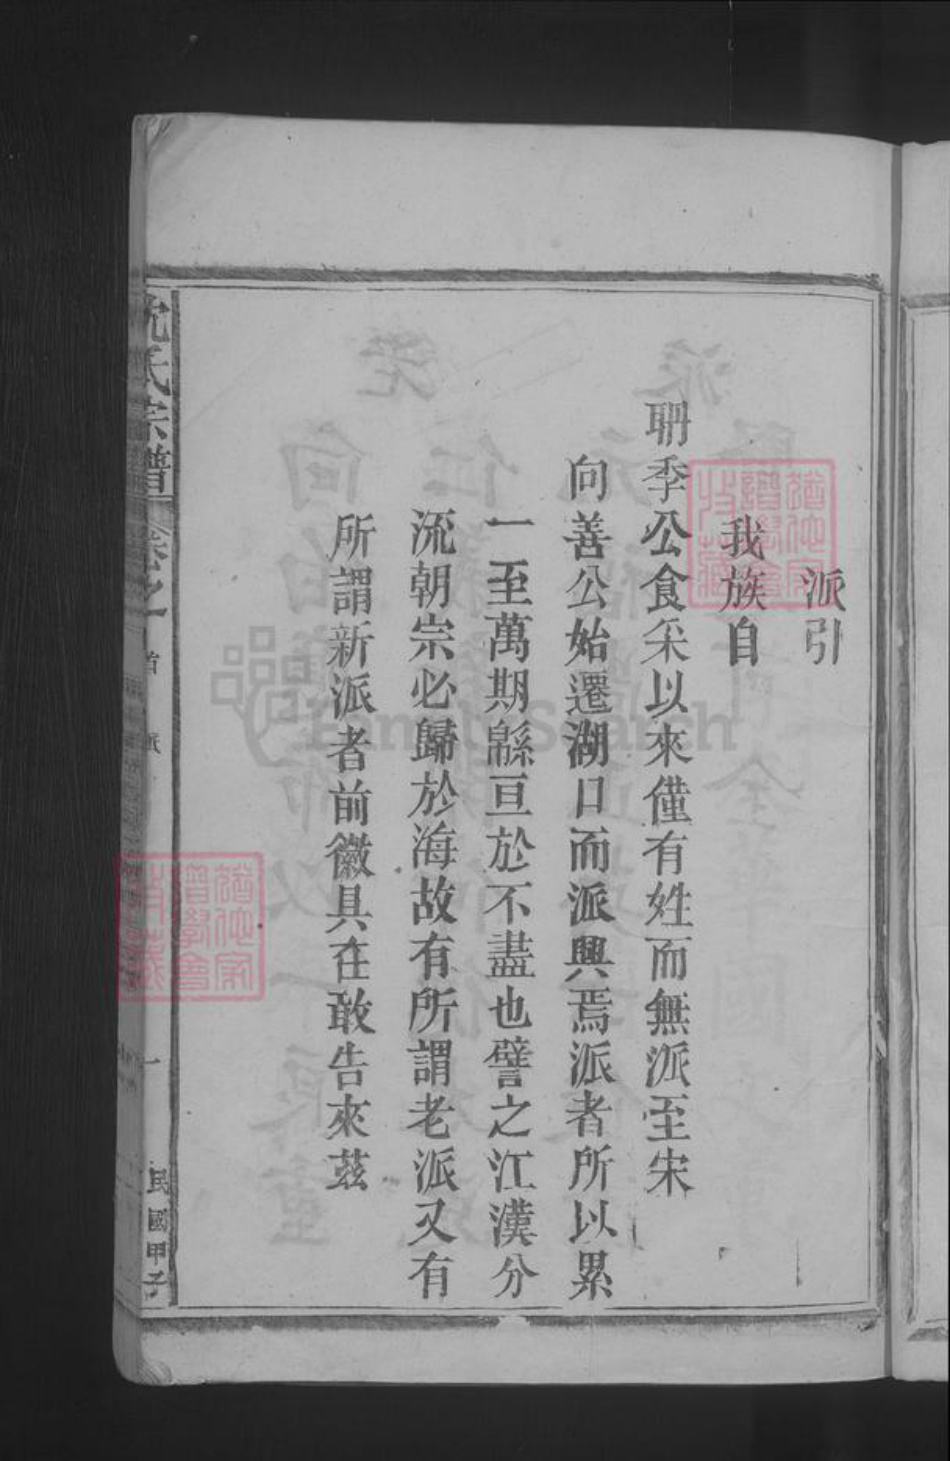 派引
我族自
聃季公食采以來僅有姓而無派至宋
向善公始遷湖口而派興焉派者所以累
一至萬期緜亘於不盡也譬之江漢分
流朝宗必歸於海故有所謂老派又有
所謂新派者前徽具在敢告來茲
沈氏宗譜
卷之首
派
一
民國甲子
FamilySearch